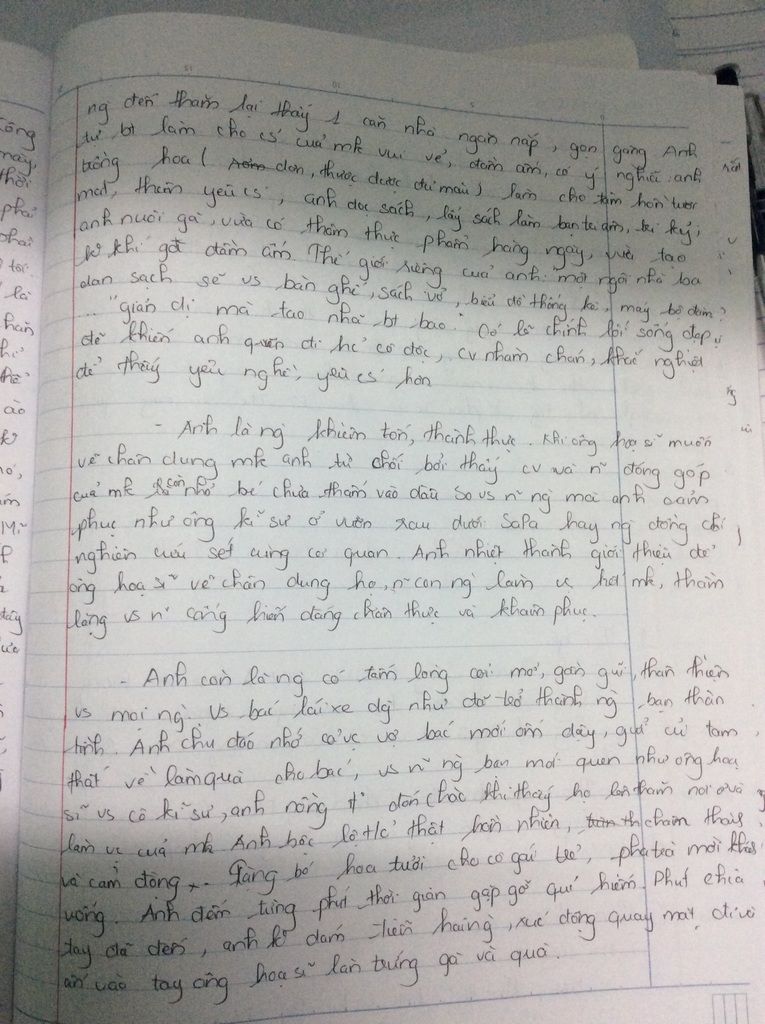 ng đến thăm lại thấy 1 căn nhà ngăn nắp, gọn gàng Anh
tự bt làm cho cs của mk vui vẻ, đầm ấm, có ý nghĩa: anh
trồng hoa ( đơn, thược dược đủ màu) làm cho tâm hồn tươi
mát, thêm yêu cs, anh đọc sách, lấy sách làm bạn tâm, tri kỷ,
anh nuôi gà, vừa có thêm thực phẩm hàng ngày, vừa tạo
k khí gđ đầm ấm. Thế giới riêng của anh: một ngôi nhà ba
gian sạch sẽ vs bàn ghế, sách vở, biểu đồ thống kê, máy bộ đàm
... "giản dị mà tao nhã bt bao. Có lẽ chính lối sống đẹp
đã khiến anh quên đi h/c cô độc, cv nhàm chán, khắc nghiệt
để thấy yêu nghề, yêu cs hơn
- Anh là ng khiêm tốn, thành thực. Khi ông họa sĩ muốn
vẽ chân dung mk anh từ chối bởi thấy cv và n~ đóng góp
của mk còn nhỏ bé chưa thấm vào đâu so vs n~ ng mà anh cảm
phục như ông kĩ sư ở vườn rau dưới SaPa hay ng đồng chí
nghiên cứu sét cùng cơ quan. Anh nhiệt thành giới thiệu để
ông họa sĩ vẽ chân dung họ, n~ con ng làm vc hết mk, thầm
lặng vs n~ cống hiến đáng chân thực và khâm phục.
- Anh còn là ng có tấm lòng cởi mở, gần gũi, thân thiện
vs mọi ng. Vs bác lái xe dg như đã trở thành ng bạn thân
tình. Anh chu đáo nhớ cả vc vợ bác mới ốm dậy, gửi củ tam
thất về làm quà cho bác, vs n~ ng bạn mới quen như ông họa
sĩ vs cô kĩ sư, anh nồng đón chào khi thấy họ lên thăm nơi ở và
làm vc của mk Anh bộc lộ t/c thật hồn nhiên, chân thành,
và cảm động Tặng bó hoa tươi cho cô gái trẻ, pha trà mời khách
Anh đếm từng phút thời gian gặp gỡ quí hiếm. Phút chia
tay đã đến, anh k dám tiễn hai ng, xúc động quay mặt đi và
ấn vào tay ông họa sĩ làn trứng gà và quà.